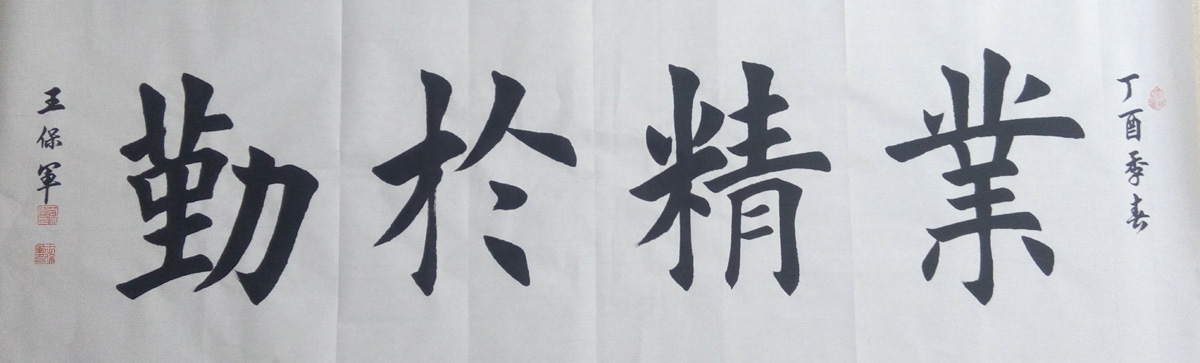 丁酉季春
業精於勤
王保軍